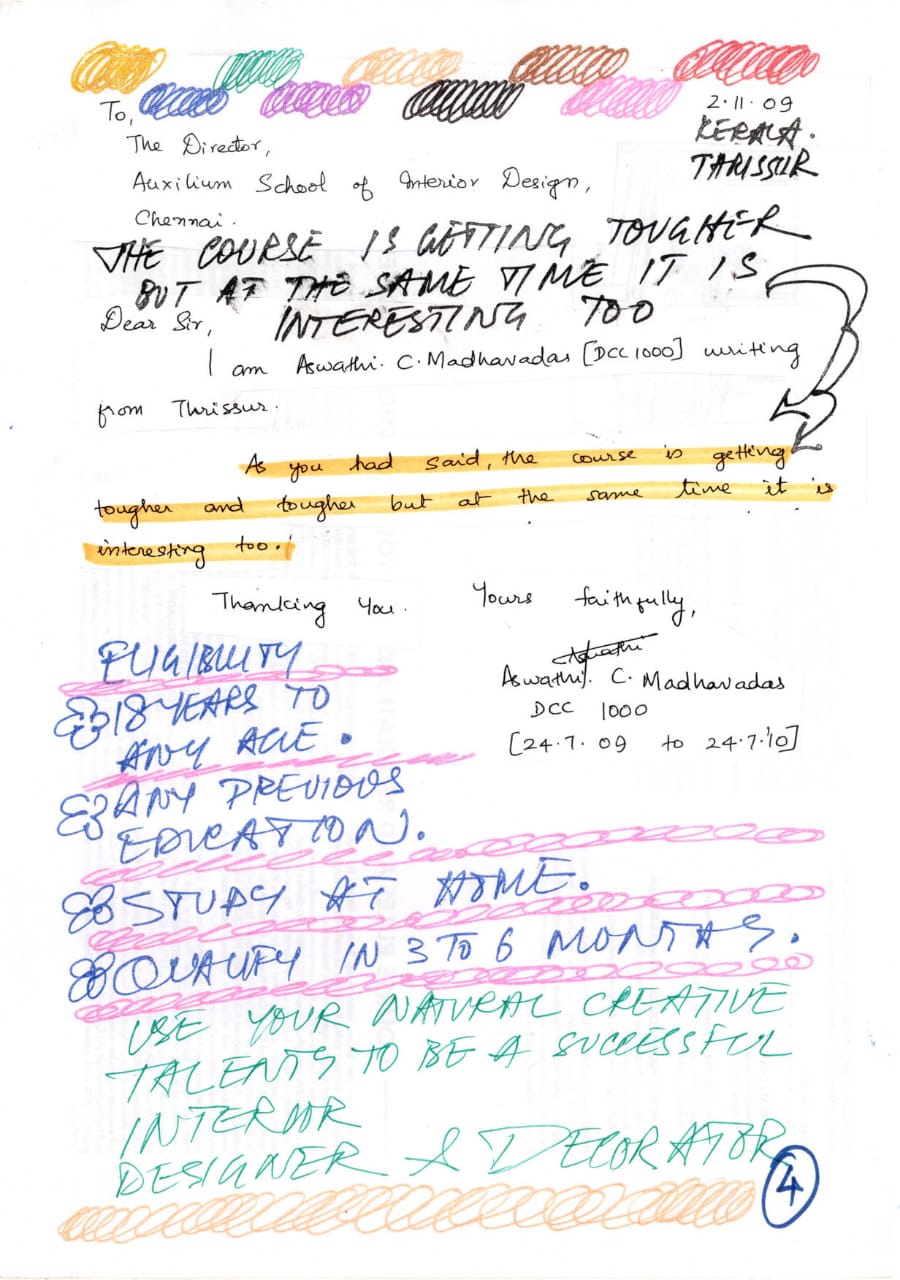 To,
2.11.09
KERALA.
THRISSUR
The Director,
Auxilium School of Interior Design,
Chennai.
THE COURSE IS GETTING TOUGHER
BUT AT THE SAME TIME IT IS
INTERESTING TOO
Dear Sir,
I am Aswathi. C. Madhavadas [DCC 1000] writing
from Thrissur.
As you had said, the course is getting
tougher and tougher but at the same time it is
interesting too.
Thanking You.
Yours faithfully,
Aswathi
Aswathi. C. Madhavadas
DCC 1000
[24.7.09 to 24.7.10]
ELIGIBILITY
18 YEARS TO
ANY AGE.
ANY PREVIOUS
EDUCATION.
STUDY AT HOME.
QUALIFY IN 3 TO 6 MONTHS.
USE YOUR NATURAL CREATIVE
TALENTS TO BE A SUCCESSFUL
INTERIOR
DESIGNER & DECORATOR
4